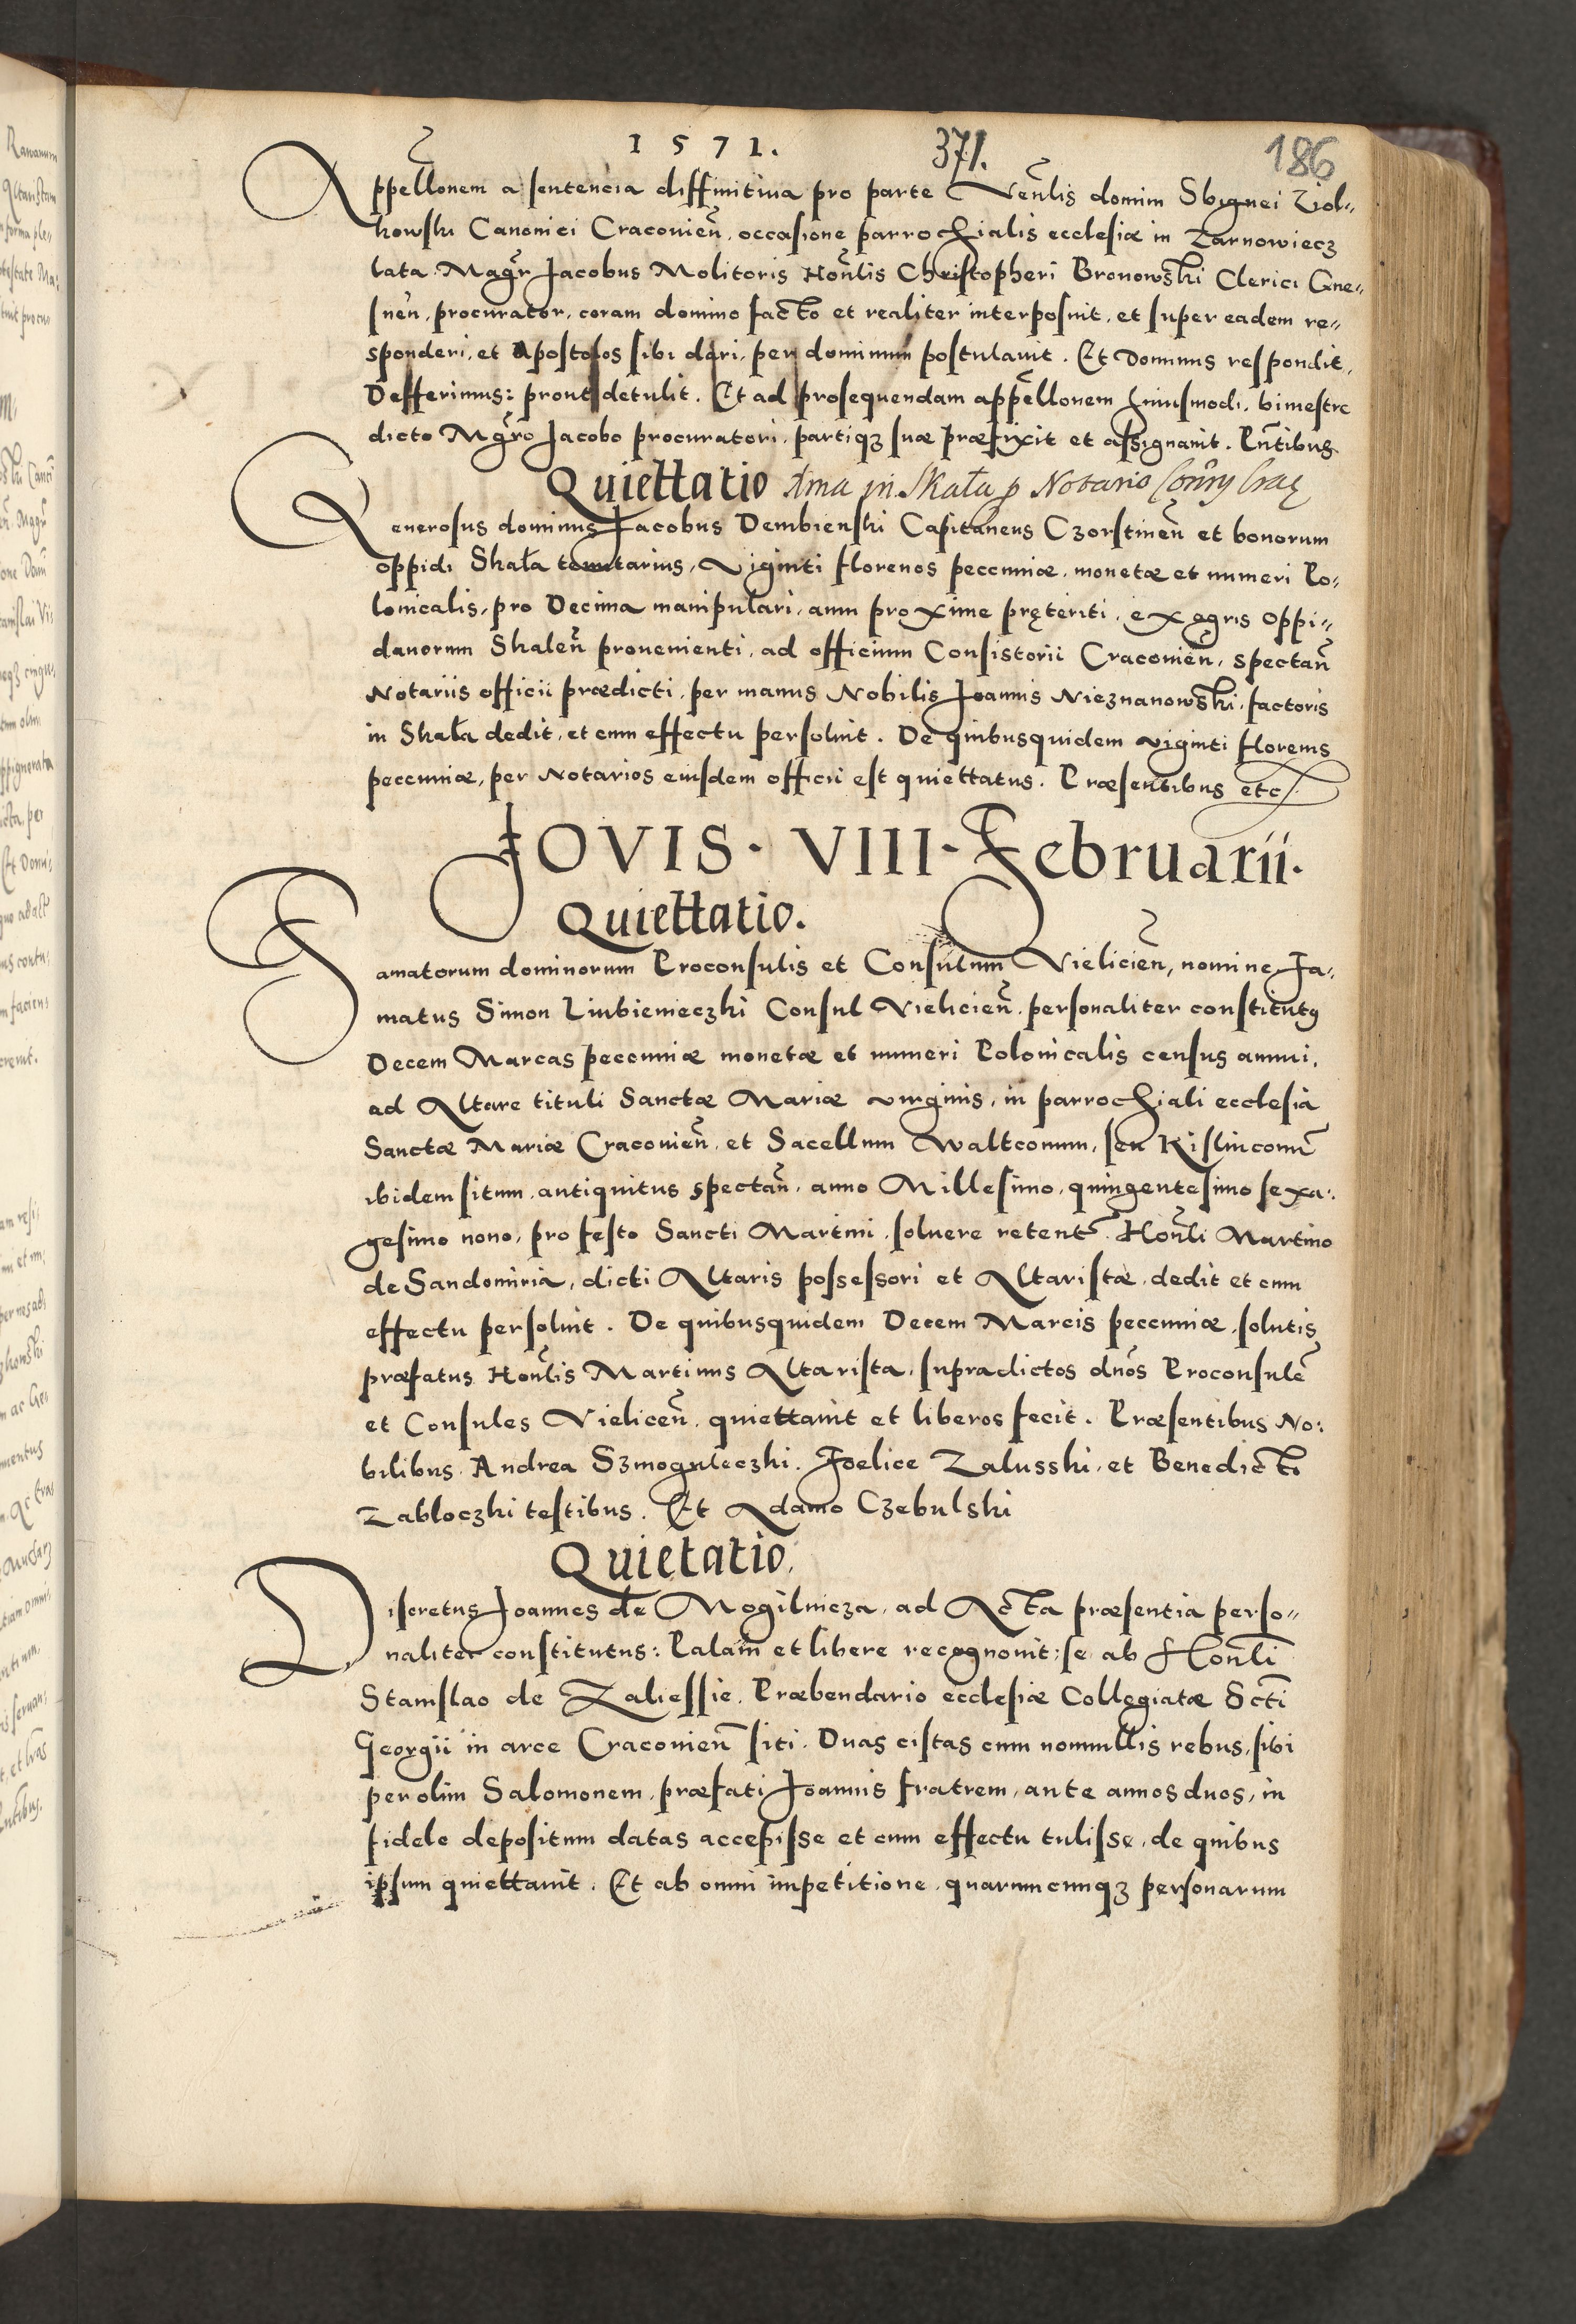 1571. 371. 186
Appellonem a sentencia diffinitiua pro parte Venlis domini Sbignei Ziol-
kowski Canonici Cracouien. occasione parrochialis ecclesiæ in Zarnowiecz
lata. Magr Jacobus Molitoris Honlis Christopheri Bronowski Clerici Gne-
snen. procurator. coram domino facto et realiter interposuit. et super eadem re-
sponderi. et Apostolos sibi dari. per dominum postulauit. Et Dominus respondit.
Defferimus: prout detulit. Et ad prosequendam appellonem huiusmodi. bimestre
dicto Mgro Jacobo procuratori. partiqз suæ præfixit et assignauit. Pntibus.
Quiettatio Xma in Skała p Notario
Generosus dominus Jacobus Dembienski Capitaneus Czorstinen et bonorum
oppidi Skała tenutarius, Viginti florenos peccuniæ. monetæ et numeri Po-
lonicalis, pro Decima manipulari. anni proxime pręteriti. ex agris Oppi-
danorum Skalen prouenienti. ad officium Consistorii Cracouien, spectan
Notariis officii prædicti. per manus Nobilis Joannis Nieznanowski. factoris
in Skała dedit, et cum effectu persoluit. De quibusquidem viginti florenis
peccuniæ, per Notarios eiusdem officii est quiettatus. Præsentibus etc.
JOVIS. VIII. Februarii.
Quiettatio.
Famatorum dominorum Proconsulis et Consulum Vielicien, nomine Fa-
matus Simon Liubienieczki Consul Vielicien. personaliter constitutꝯ
Decem Marcas peccuniæ monetæ et numeri Polonicalis census annui.
ad Altare tituli Sanctæ Mariæ virginis, in parrochiali ecclesia
Sanctæ Mariæ Cracouien. et Sacellum Waltconum, seu Kislinconu
ibidem situm. antiquitus spectan. anno Millesimo. quingentesimo sexa-
gesimo nono. pro festo Sancti Martini. soluere retent. Honli Martino
de Sandomiria, dicti Altaris possessori et Altaristæ. dedit et cum
effectu persoluit. De quibusquidem Decem Marcis peccuniæ. solutis
præfatus Honlis Martinus Altarista. supradictos dnos Proconsule
et Consules Vielicen. quiettauit et liberos fecit. Præsentibus No-
bilibus. Andrea Szmoguleczki. Foelice Zalusski. et Benedicto
Zabloczki testibus. Et Adamo Czebulski
Quietatio.
Discretus Joannes de Mogilnicza, ad Acta præsentia perso-
naliter constitutus: Palam et libere recognouit; se ab Honli
Stanislao de Zaliessie. Præbendario ecclesiæ Collegiatæ Scti
Georgii in arce Cracouien siti. Duas cistas cum nonnullis rebus, sibi
per olim Salomonem. præfati Joannis fratrem, ante annos duos, in
fidele depositum datas accepisse et cum effectu tulisse. de quibus
ipsum quiettauit. Et ab omni impetitione. quarumcunqз personarum